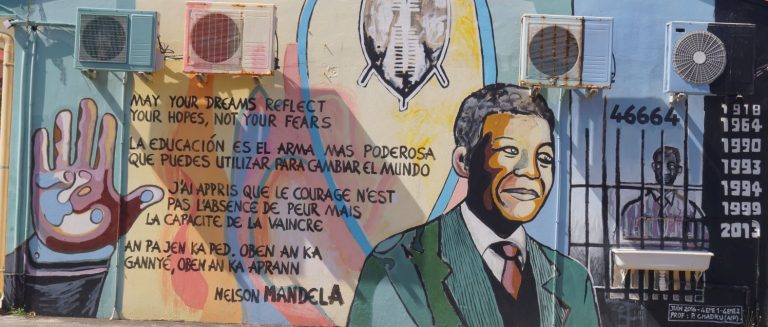 MAY YOUR DREAMS REFLECT
YOUR HOPES, NOT YOUR FEARS
LA EDUCACIÓN ES EL ARMA MAS PODEROSA
QUE PUEDES UTILIZAR PARA CAMBIAR EL MUNDO
J'AI APPRIS QUE LE COURAGE N'EST
PAS L'ABSENCE DE PEUR MAIS
LA CAPACITE DE LA VAINCRE
AN PA JEN KA PED. OBEN AN KA
GANNYÉ, OBEN AN KA APRANN
NELSON MANDELA
46664
1918
1964
1990
1993
1994
1999
2013
JUIN 2016 - 4EME1 - 4EME2
PROF : P. CHADRU